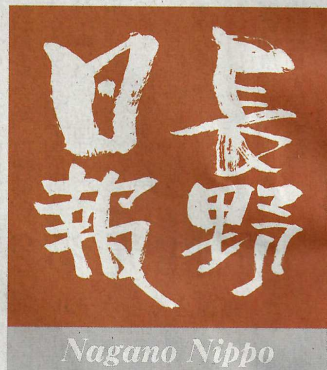 長野
日報
Nagano Nippo